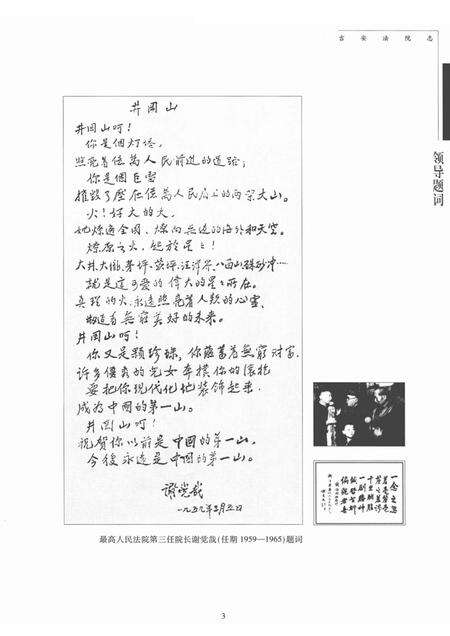 吉安法院志
领导题词
井冈山
井冈山呵！
你是個灯塔，
照亮着億萬人民前进的道路；
你是個巨雷
摧毁了壓在億萬人民肩上的两架大山。
火！好大的火，
她燎遍全國、燎向無边的海外和天空。
燎原之火，起於星星！
大井、大陇、茅坪、茨坪、汪洋界、八面山
就是這可爱的偉大的星星所在。
真理的火，永远照亮着人類的心靈，
無窮美好的未来。
井冈山呵！
你又是顆珍珠，你蕴蓄着無窮财富，
许多優秀的兒女在摸你的
要把你现代化地装飾起来，
成为中國的第一山。
井冈山呵！
祝賀你以前是中國的第一山，
今後永远是中國的第一山。
谢觉哉
一九五九年三月五日
最高人民法院第三任院长谢觉哉(任期1959—1965)题词
3